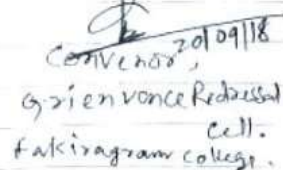 20/09/18
Convenor,
Grienvonce Redressal
Cell.
Fakiragram College.